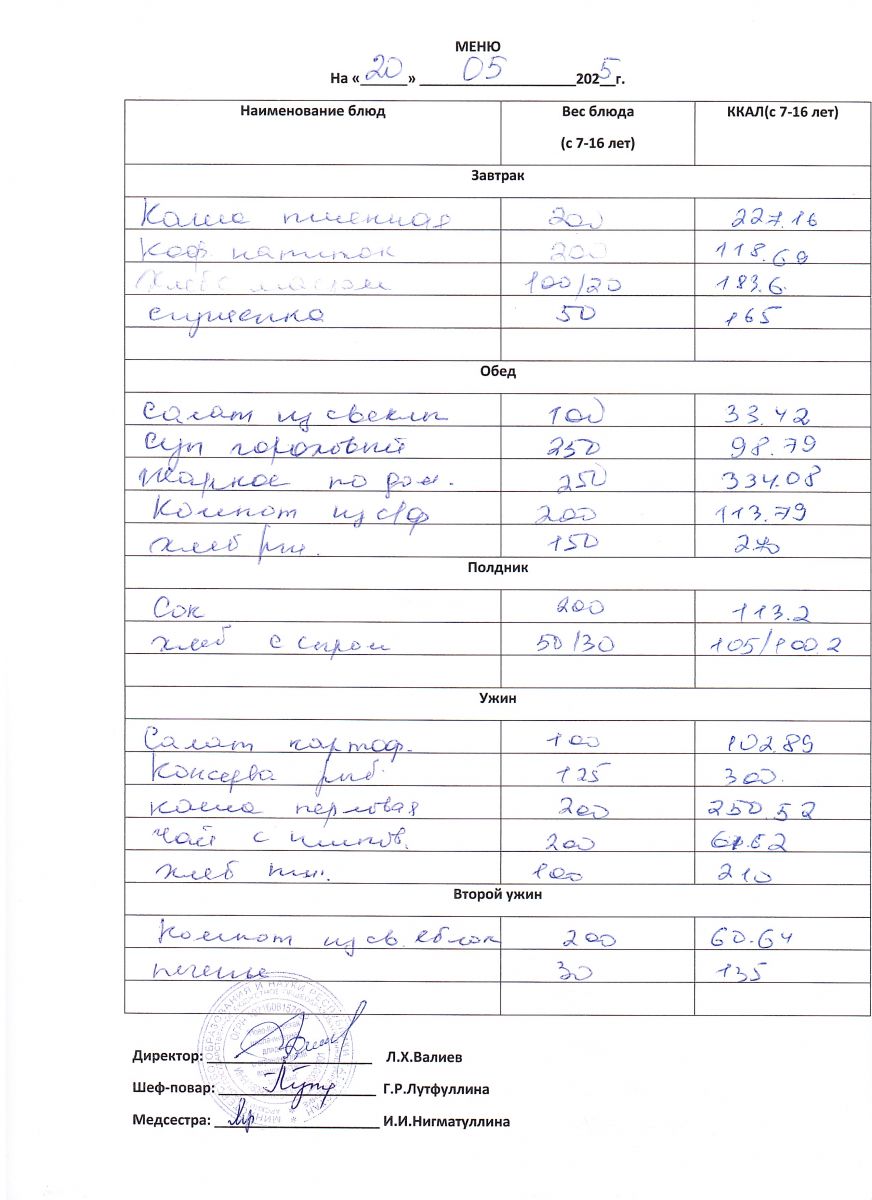 МЕНЮ
На «20» 05 2025г.
Наименование блюд Вес блюда (с 7-16 лет) ККАЛ(с 7-16 лет)
Завтрак
Каша пшенная 200 227.16
Коф. напиток 200 118.69
Хлеб с маслом 100/20 183.6
сгущенка 50 165
Обед
Салат из свеклы 100 33.42
Суп гороховый 250 98.79
Жаркое по дом. 250 334.08
Компот из с/ф 200 113.79
хлеб рж. 150 270
Полдник
Сок 200 113.2
хлеб с сыром 50/30 105/100.2
Ужин
Салат картоф. 100 102.89
Консерва рыб. 125 300.
каша перловая 200 250.52
чай с шипов. 200
хлеб пш. 100 210
Второй ужин
Компот из св. яблок 200 60.64
печенье 30 135
Директор: Л.Х.Валиев
Шеф-повар: Г.Р.Лутфуллина
Медсестра: И.И.Нигматуллина